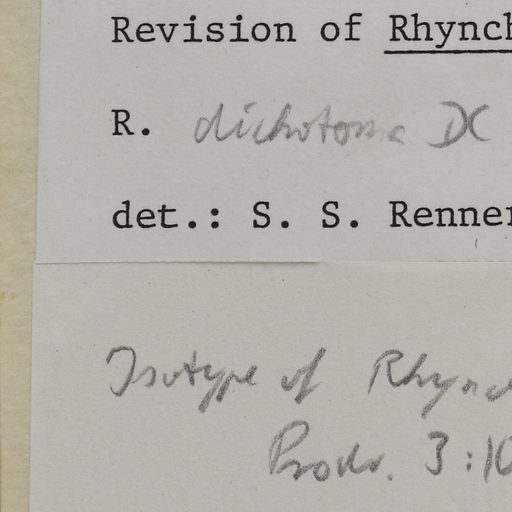 Revision of Rhynch
R. dichotoma DC
det.: S. S. Renner
Isotype of Rhync
Prodr. 3:10